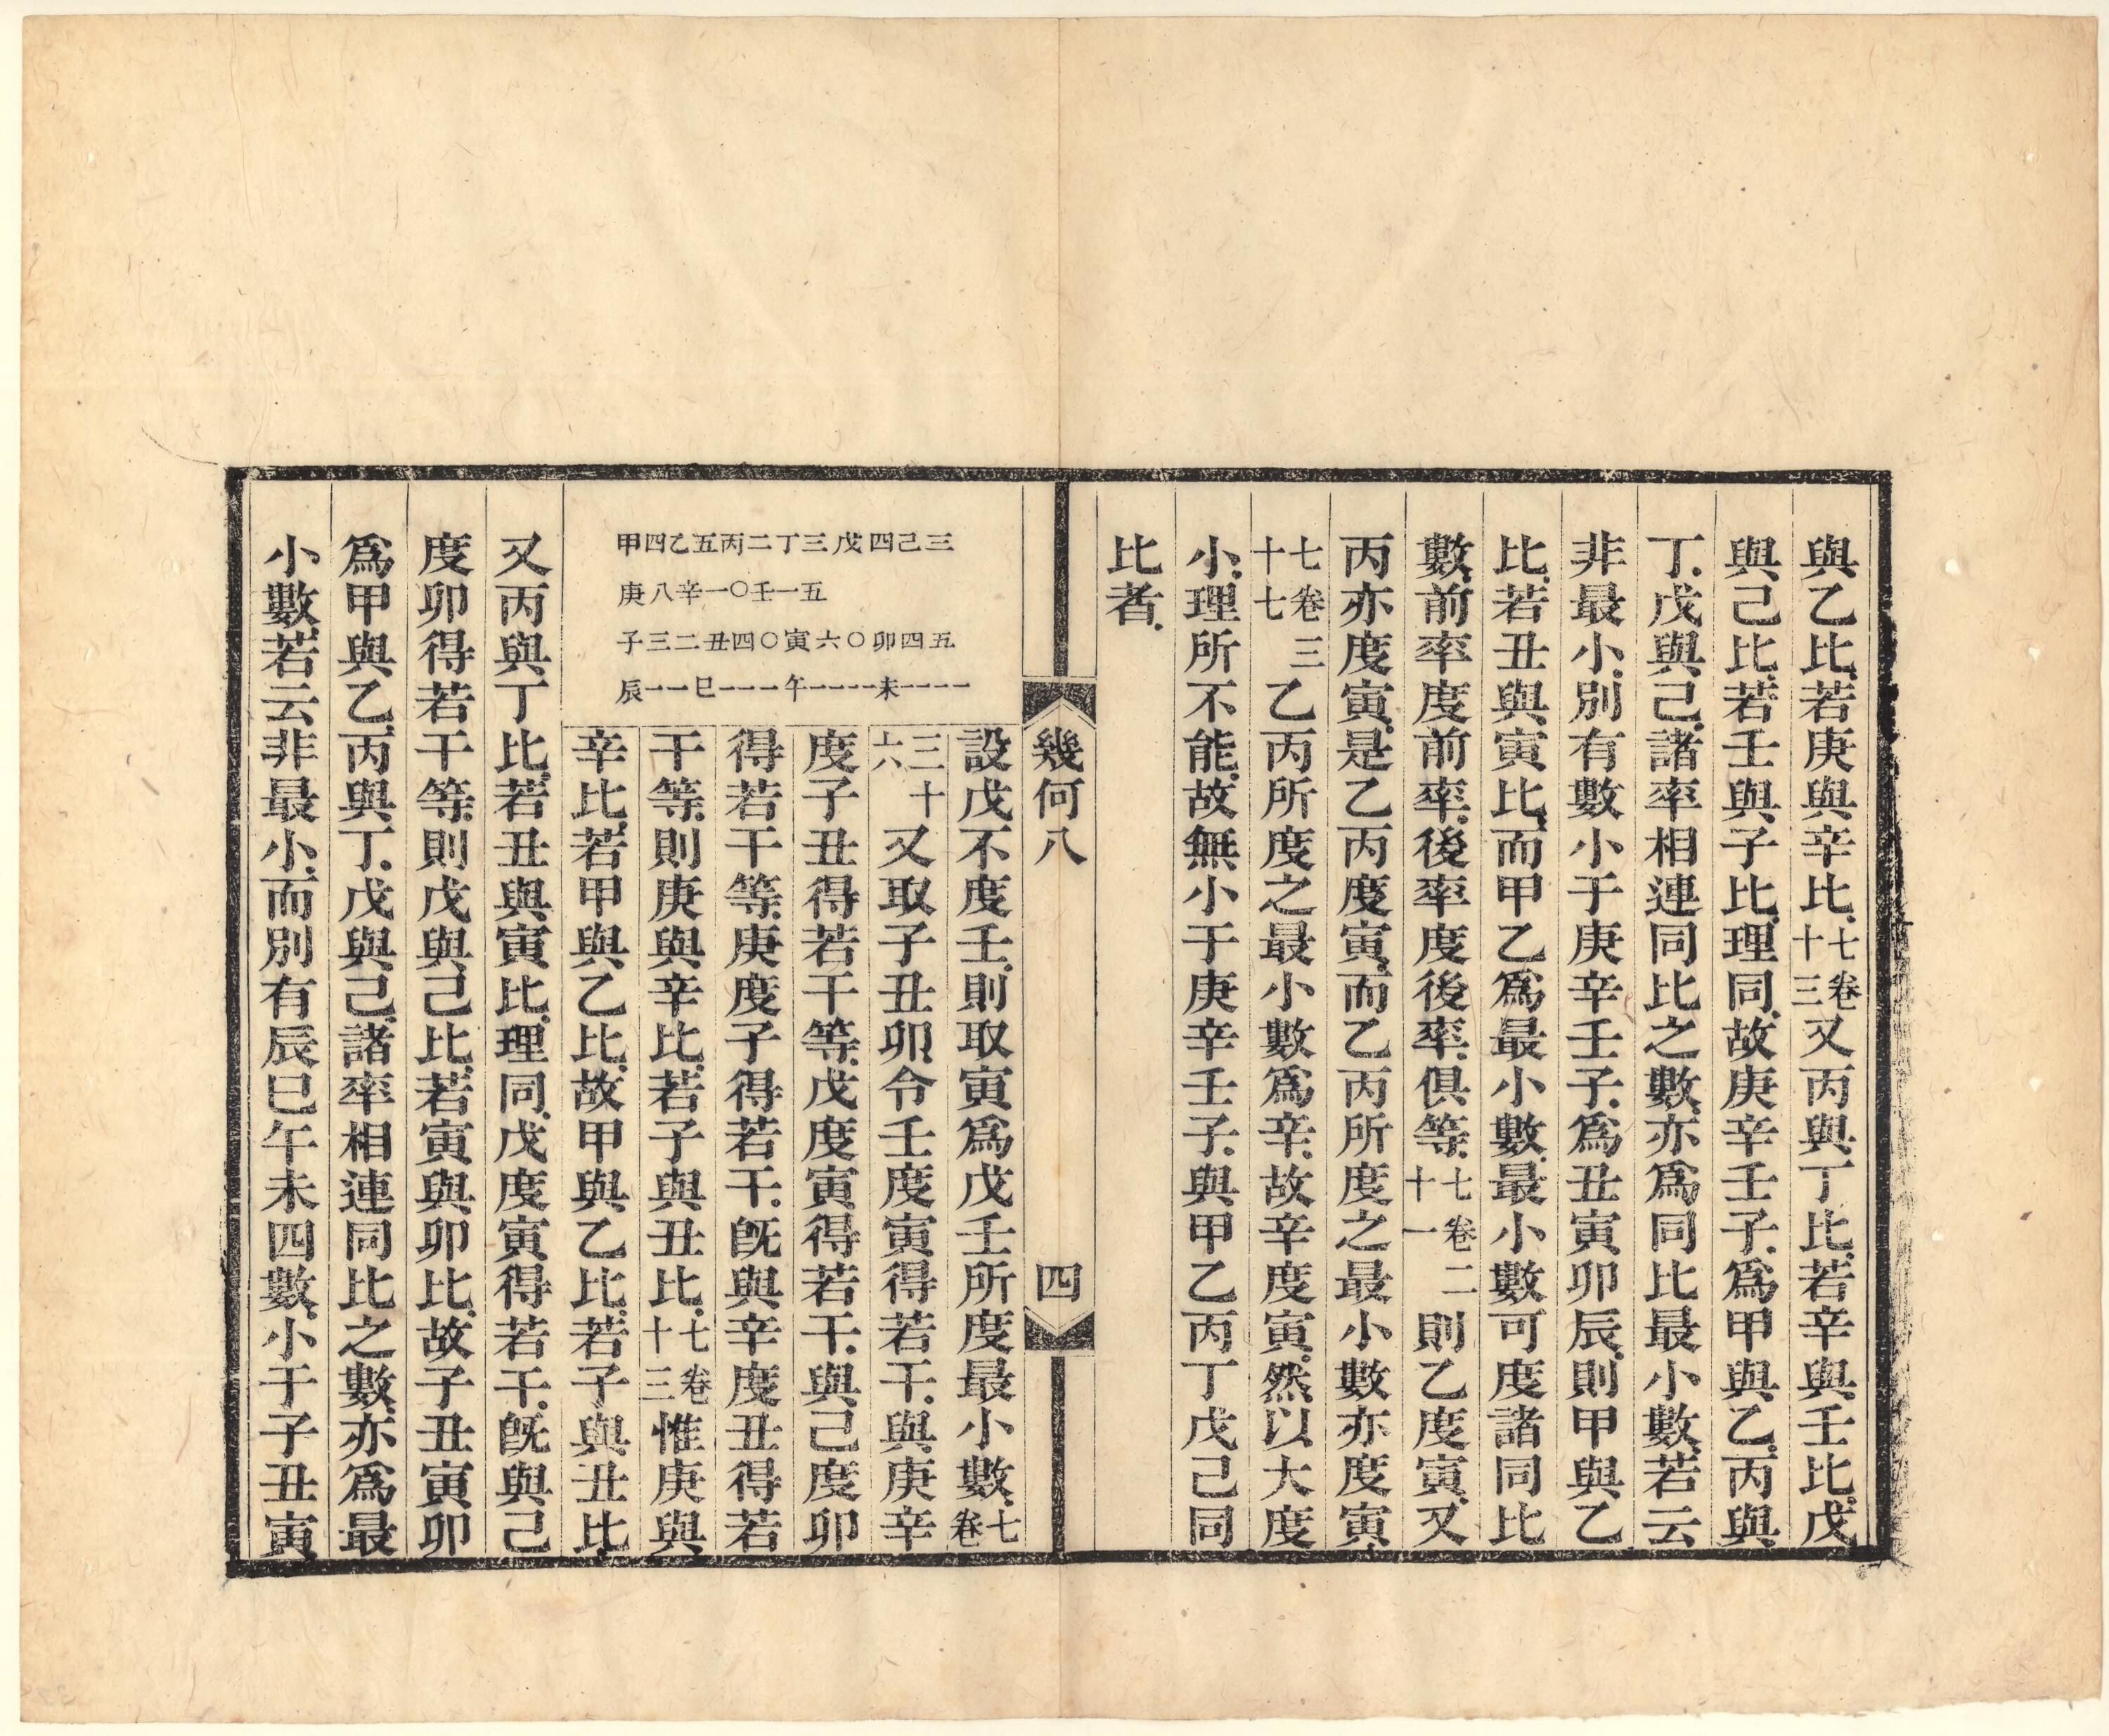 與乙比.若庚與辛比.七卷十三又丙與丁比.若辛與壬比.戊
與己比.若壬與子比.理同.故庚辛壬子.爲甲與乙.丙與
丁.戊與己.諸率相連同比之數.亦爲同比最小數.若云
非最小.別有數小于庚辛壬子.爲丑寅卯辰.則甲與乙
比.若丑與寅比.而甲乙爲最小數.最小數可度諸同比
數.前率度前率.後率度後率.俱等.七卷二十一則乙度寅.又
丙亦度寅.是乙丙度寅.而乙丙所度之最小數亦度寅.
七卷三十七乙丙所度之最小數爲辛.故辛度寅.然以大度
小.理所不能.故無小于庚辛壬子.與甲乙丙丁戊己同
比者.
幾何八
四
甲四乙五丙二丁三戊四己三
庚八辛一〇壬一五
子三二丑四〇寅六〇卯四五
辰一一巳一一一午一一一一未一一一一
設戊不度壬.則取寅爲戊壬所度最小數.七卷
三十六又取子丑卯.令壬度寅得若干.與庚辛
度子丑得若干等.戊度寅得若干.與己度卯
得若干等.庚度子得若干.旣與辛度丑得若
干等.則庚與辛比.若子與丑比.七卷十三惟庚與
辛比.若甲與乙比.故甲與乙比.若子與丑比.
又丙與丁比.若丑與寅比.理同.戊度寅得若干.旣與己
度卯得若干等.則戊與己比.若寅與卯比.故子丑寅卯
爲甲與乙.丙與丁.戊與己.諸率相連同比之數.亦爲最
小數.若云非最小.而別有辰巳午未四數.小于子丑寅